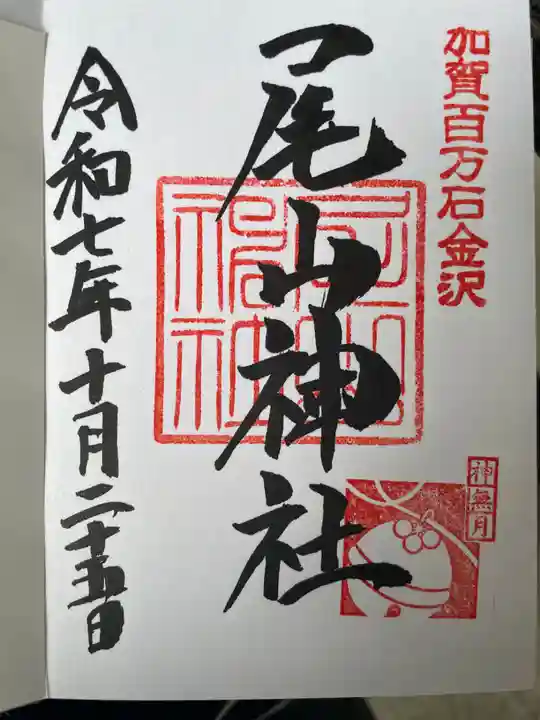 加賀百万石金沢
神無月
尾山神社
尾山神社
令和七年十月二十五日